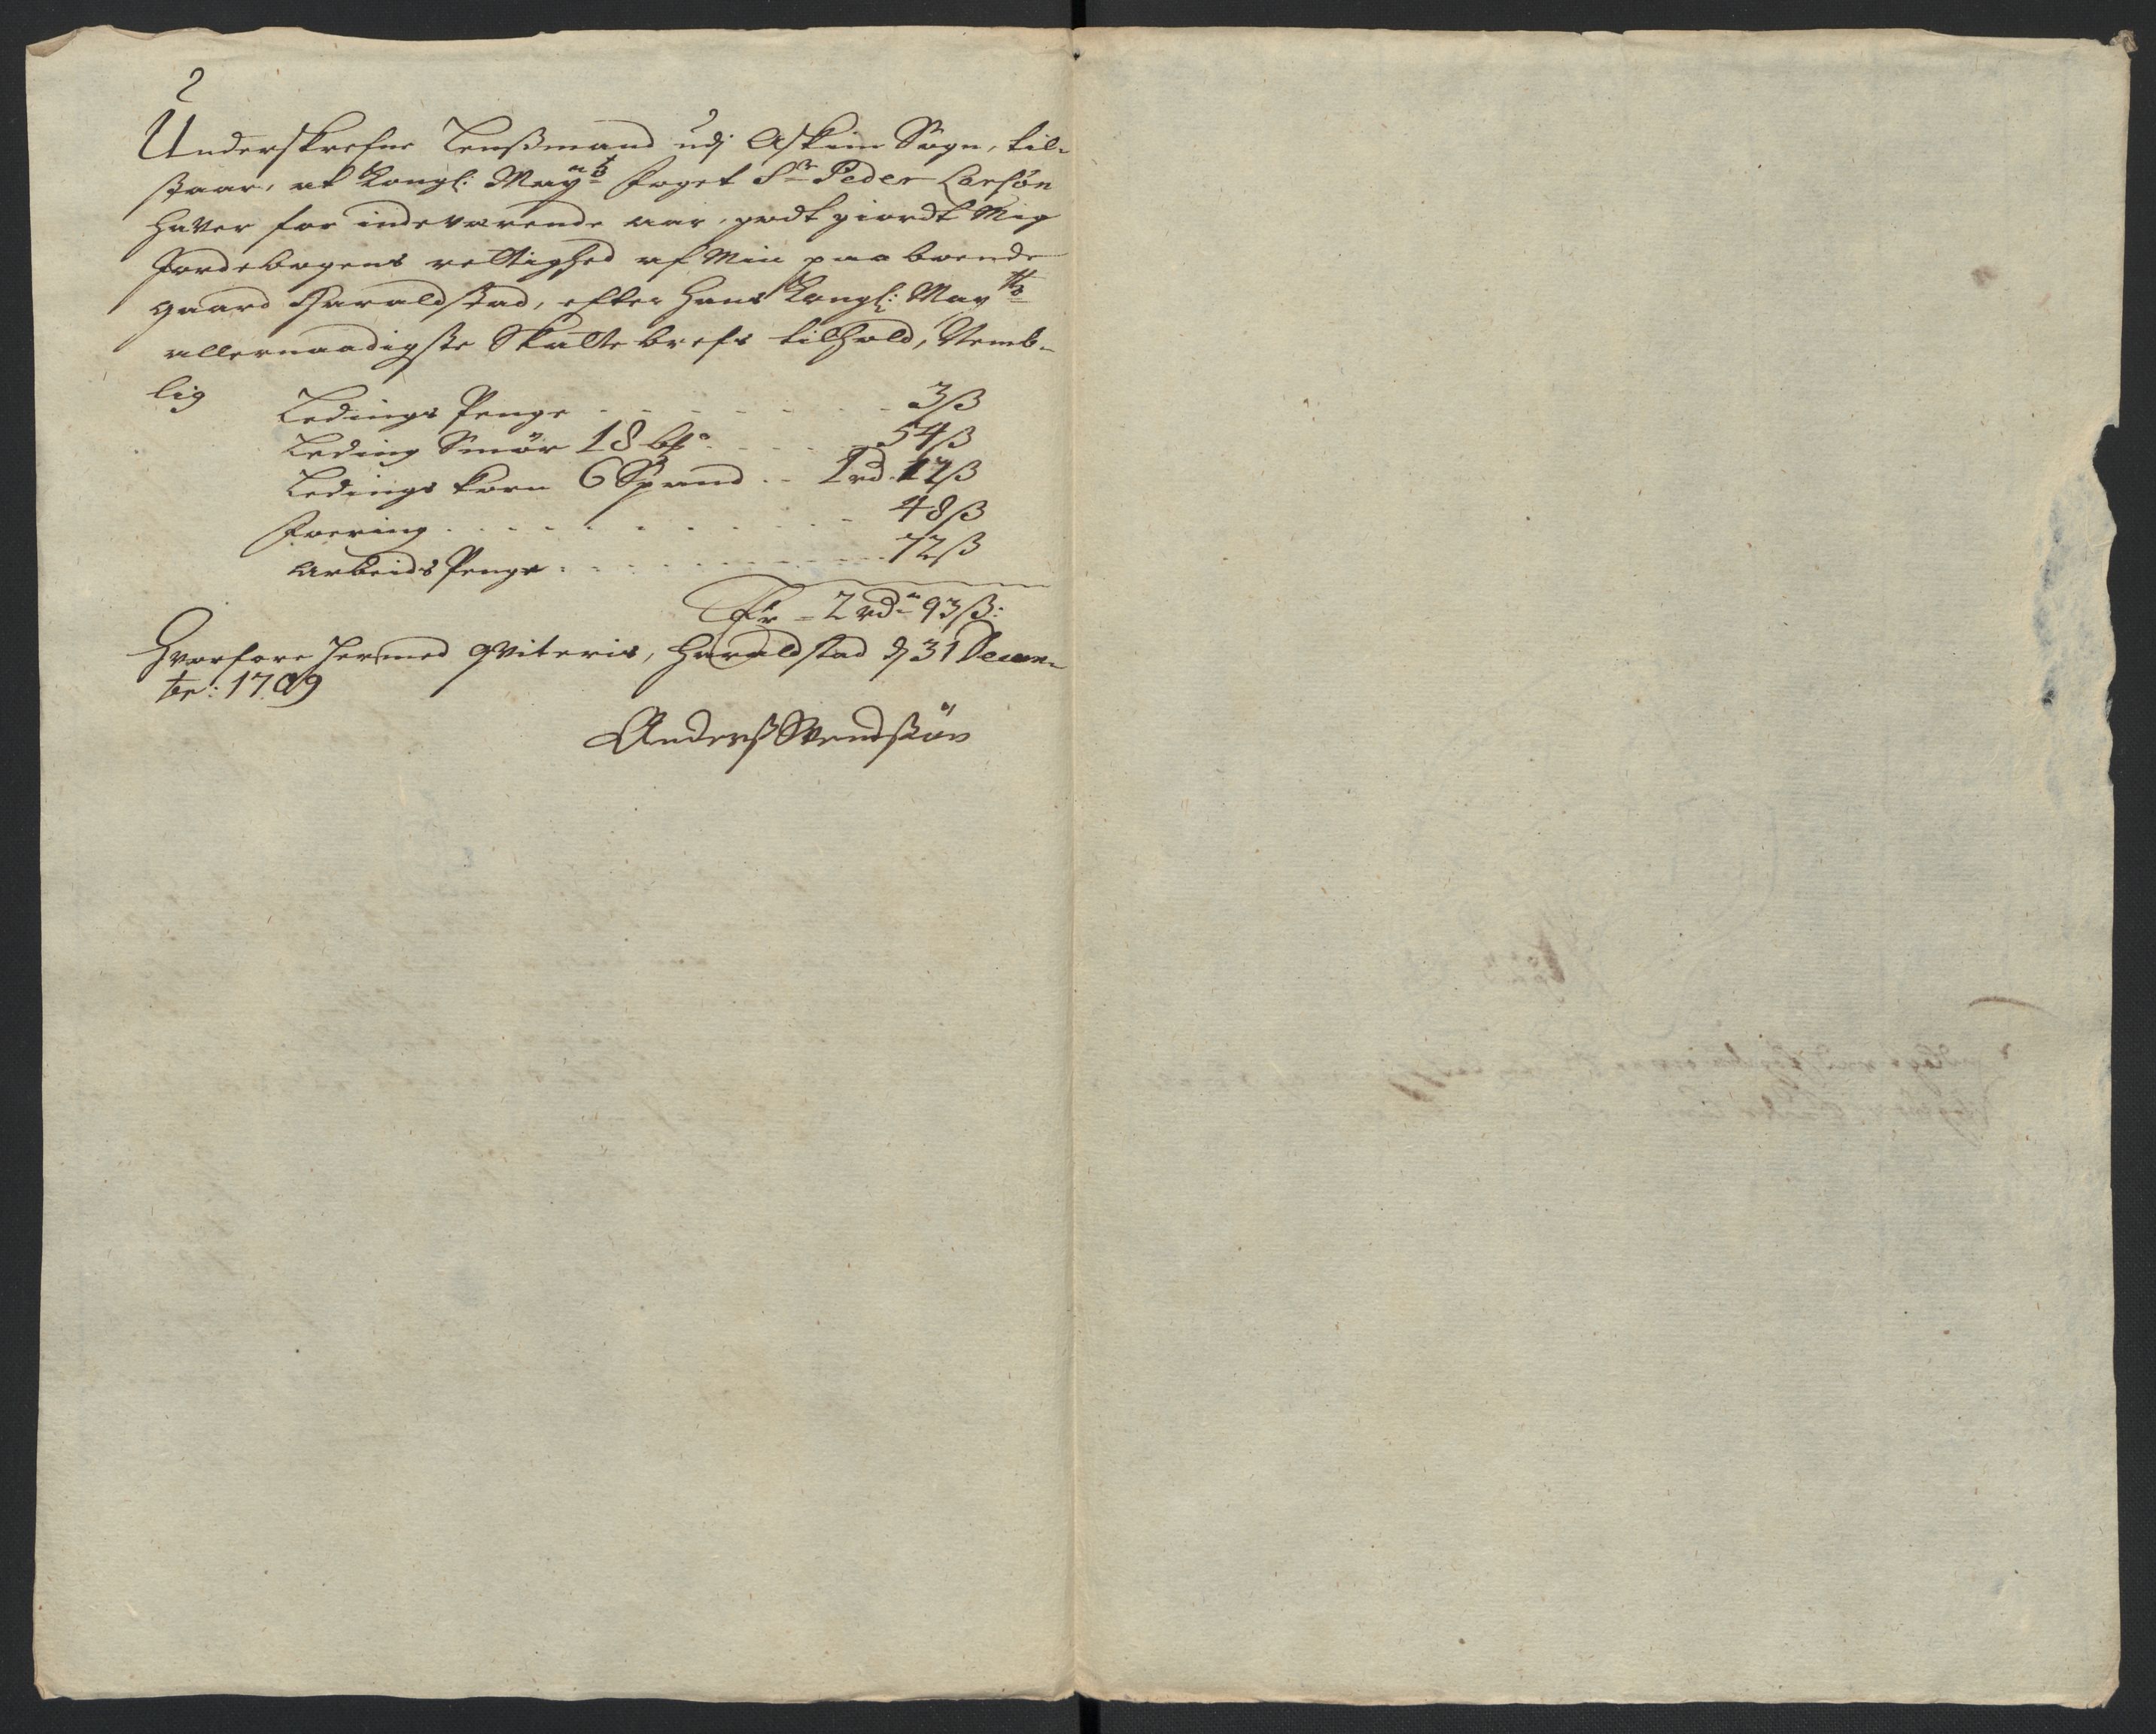 Underskrefne Lensßmand udj Askim Sogn, til-
staar, at Kongl: May.ts foget Sr Peder Larsøn
haver for indeværende aar, godt giordt Mig
Jordebogens rettighed af Min paa boende
gaard Haraldstad, efter Hans Kongl: Mayts
allernaadigste Skatte brefs tilhold, Nemb-
lig
Ledings Penge - - - - - - - 3ß
Leding Smør 18 - - - - 54ß
Ledings korn 6 Spand - - 1 rd. 12ß
Foering - - - - - - - - - 48ß
Arbeids Penge - - - - - - - - 72ß
Er - 2 rd 93ß:
Hvorfore hermed qviteris, Haraldstad d 31 Decem-
br: 1709
Anderß Svendßøn